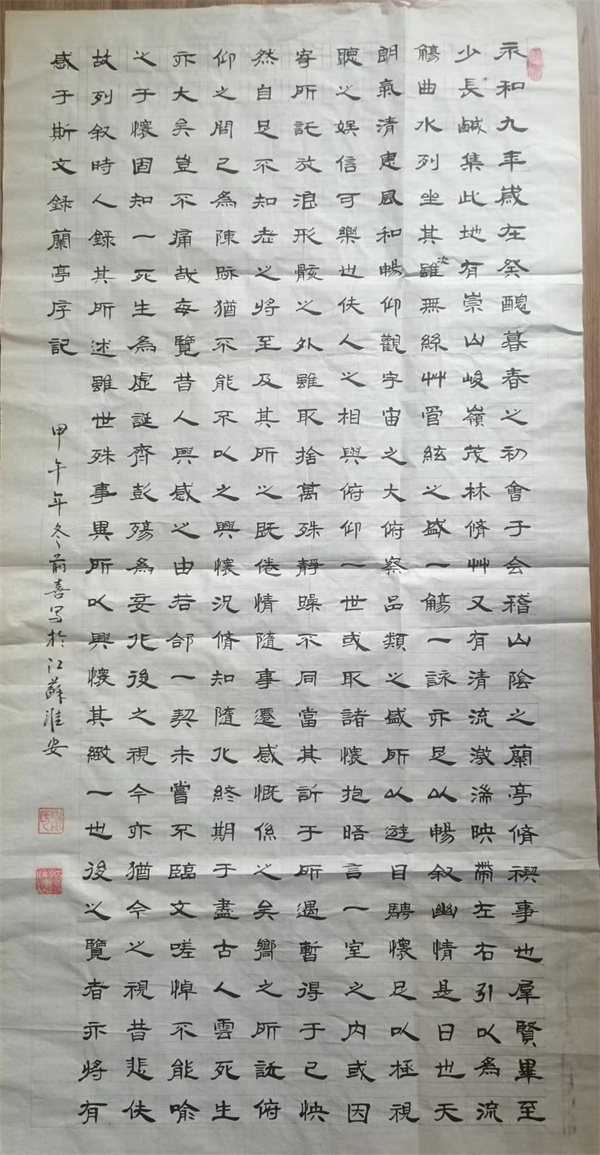 永和九年歲在癸醜暮春之初會于会稽山陰之蘭亭脩禊事也羣賢畢至
少長鹹集此地有崇山峻嶺茂林脩艸又有清流激湍映帶左右引以為流
觴曲水列坐其次雖無絲艸管絃之盛一觴一詠亦足以暢叙幽情是日也天
朗氣清惠風和暢仰觀宇宙之大俯察品類之盛所以遊目騁懷足以極視
聽之娛信可樂也伕人之相與俯仰一世或取諸懷抱晤言一室之內或因
寄所託放浪形骸之外雖取捨萬殊靜躁不同當其訢于所遇暫得于己怏
然自足不知老之將至及其所之既倦情隨事遷感慨係之矣嚮之所訢俯
仰之間已為陳跡猶不能不以之興懷況脩知隨化終期于盡古人雲死生
亦大矣豈不痛哉每覽昔人興感之由若郃一契未嘗不臨文嗟悼不能喻
之于懷固知一死生為虛誕齊彭殤為妄化後之視今亦猶今之視昔悲伕
故列叙時人錄其所述雖世殊事異所以興懷其緻一也後之覽者亦將有
感于斯文錄蘭亭序記
甲午年冬前喜写於江蘇淮安